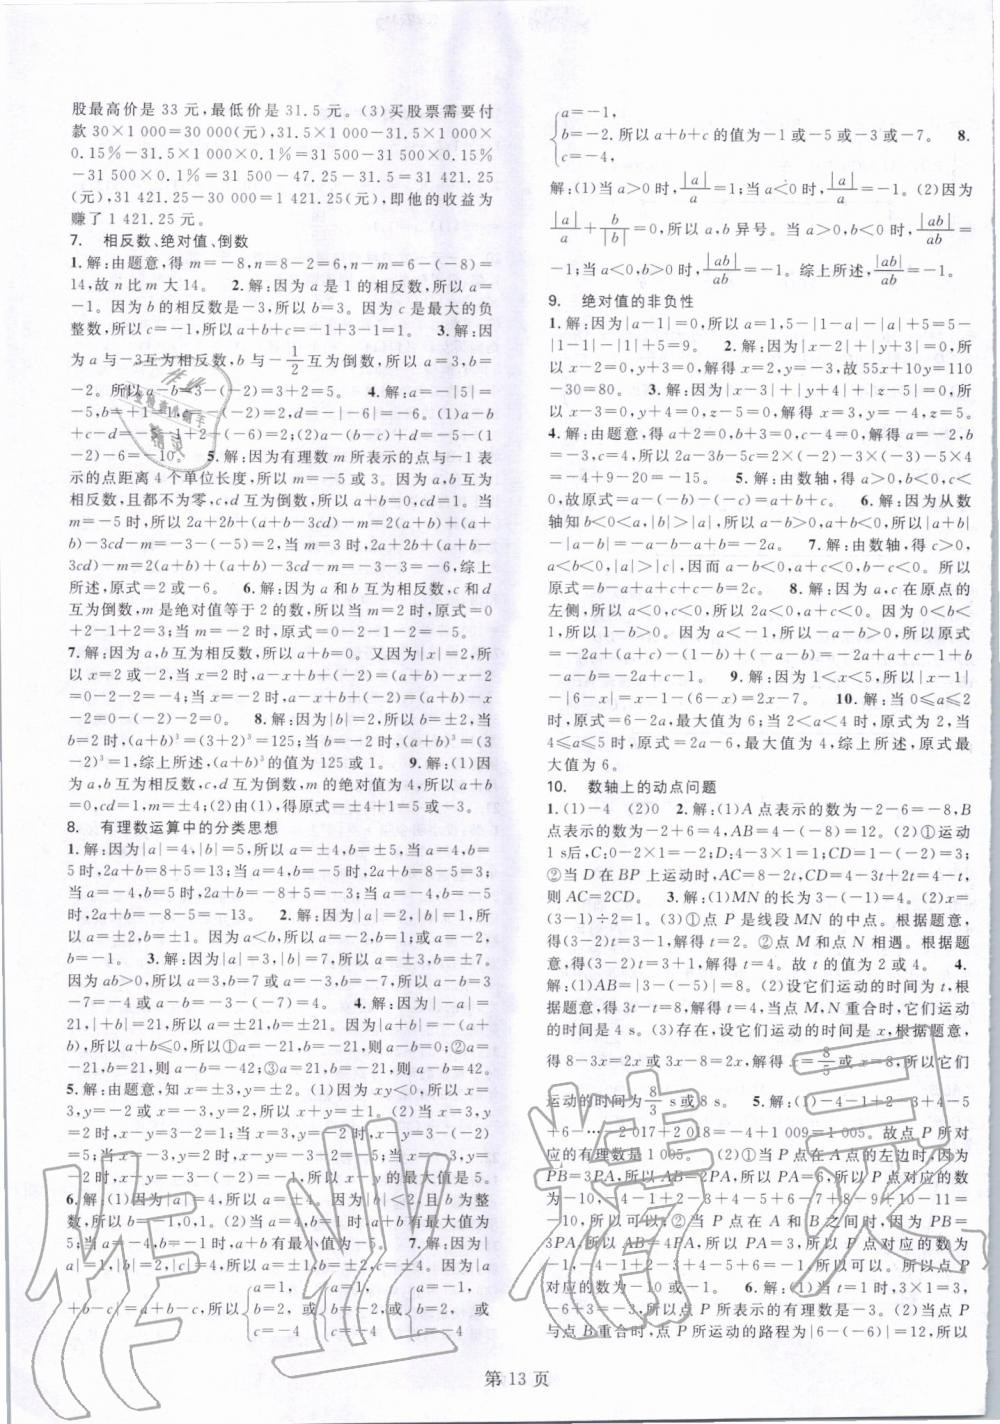 股最高价是 33 元,最低价是 31.5 元。(3)买股票需要付
款 30×1 000=30 000(元),31.5×1 000-31.5×1 000×
0.15%-31.5×1 000×0.1%=31 500-31 500×0.15%
-31 500×0.1%=31 500-47.25-31.5=31 421.25
(元),31 421.25-30 000=1 421.25(元),即他的收益为
赚了 1 421.25 元。
7. 相反数、绝对值、倒数
1.解:由题意,得 m=-8,n=8-2=6,n-m=6-(-8)=
14,故 n 比 m 大 14。 2.解:因为 a 是 1 的相反数,所以 a=
-1。因为 b 的相反数是-3,所以 b=3。因为 c 是最大的负
整数,所以 c=-1,所以 a+b+c=-1+3-1=1。 3.解:因
为 a 与-3互为相反数,b 与-1/2互为倒数,所以 a=3,b=
-2。所以 a-b=3-(-2)=3+2=5。 4.解:a=-|5|=
-5,b=+1 c=-(-2)=2,d=-|-6|=-6。(1)a-b
(2)a-(b-c)+d=-5-(1
-2)-6=-10。 5.解:因为有理数 m 所表示的点与-1 表
示的点距离 4 个单位长度,所以 m=-5 或 3。因为 a,b 互为
相反数,且都不为零,c,d 互为倒数,所以 a+b=0,cd=1。当
m=-5 时,所以 2a+2b+(a+b-3cd)-m=2(a+b)+(a+
b)-3cd-m=-3-(-5)=2。当 m=3 时,2a+2b+(a+b-
3cd)-m=2(a+b)+(a+b)-3cd=-3-3=-6,综上
所述,原式=2或-6。 6.解:因为 a 和 b 互为相反数,c 和 d
互为倒数,m 是绝对值等于 2 的数,所以当 m=2 时,原式=0
+2-1+2=3;当 m=-2 时,原式=0-2-1-2=-5。
7.解:因为 a,b 互为相反数,所以 a+b=0。又因为|x|=2,所
以 x=2 或-2,当 x=2 时,a-x+b+(-2)=(a+b)-x-2
=0-2-2=-4;当 x=-2 时,a-x+b+(-2)=(a+b)-x
-2=0-(-2)-2=0。 8.解:因为|b|=2,所以 b=±2,当
b=2 时,(a+b)³=(3+2)³=125;当 b=-2 时,(a+b)³=(3
-2)³=1,综上所述,(a+b)³的值为 125 或 1。 9.解:(1)
因为 a,b 互为相反数,c,d 互为倒数,m 的绝对值为 4,所以 a+b
=0,cd=1,m=±4;(2)由(1),得原式=0+1±4=5或-3。
8. 有理数运算中的分类思想
1.解:因为|a|=4,|b|=5,所以 a=±4,b=±5,当 a=4,b=
5 时,2a+b=8+5=13;当 a=4,b=-5 时,2a+b=8-5=3;
当 a=-4,b=5 时,2a+b=-8+5=-3;当 a=-4,b=-5
时,2a+b=-8-5=-13。 2.解:因为|a|=2,|b|=1,所
以 a=±2,b=±1。因为 a<b,所以 a=-2,b=1 或 a=-2,
b=-1。 3.解:因为|a|=3,|b|=7,所以 a=±3,b=±7。
因为 ab>0,所以 a=3,b=7 或 a=-3,b=-7,所以 a-b=3
-7=-4 或 a-b=-3+7=4。 4.解:因为|-a|=
21,|+b|=21,所以 a=±21,b=±21。因为|a+b|=-(a+
b),所以 a+b≤0,所以①a=-21,b=21,则 a-b=0;②a=
21,b=-21,则 a-b=42;③a=21,b=-21,则 a-b=42。
5.解:由题意,知 x=±3,y=±2。(1)因为 xy<0,所以 x=
3,y=-2 或 x=-3,y=2,所以 x+y=±1。(2)当 x=3,y=
2 时,x-y=3-2=1;当 x=3,y=-2 时,x-y=3-(-2)=5;
综上,所以 x-y 的最大值是 5。
6.解:(1)因为|a|=4,所以 a=±4。因为|b|<2,且 b 为整
数,所以 b=-1,0,1。(2)当 a=4,b=1 时,a+b有最大值为
5;当 a=-4,b=-1 时,a+b有最小值为-5。 7.解:因为|
a|=1,|b|=2,|c|=4,所以 a=±1,b=±2,c=±4。因为|a
+b-c|=a+b-c,所以{a=1, b=2, c=-4 或{a=-1, b=2, c=-4 或{a=1, b=-2, c=-4 或
{a=-1, b=-2, c=-4, 所以 a+b+c 的值为-1 或-5 或-3 或-7。 8.
解:(1)当 a>0 时,|a|/a=1;当 a<0 时,|a|/a=-1。(2)因为
|a|/a+b/|b|=0,所以 a,b 异号。当 a>0,b<0 时,|ab|/ab=
-1;当 a<0,b>0 时,|ab|/ab=-1。综上所述,|ab|/ab=-1。
9. 绝对值的非负性
1.解:因为|a-1|=0,所以 a=1,5-|1-a|-|a|+5=5-
|1-1|-|1|+5=9。 2.解:因为|x-2|+|y+3|=0,所
以 x-2=0,y+3=0,解得 x=2,y=-3,故 55x+10y=110
-30=80。 3.解:因为|x+3|+|y+4|+|z-5|=0,所
以 x+3=0,y+4=0,z-5=0,解得 x=-3,y=-4,z=5。
4.解:由题意,得 a+2=0,b+3=0,c-4=0,解得 a=-2,b=
-3,c=4,所以 5a-b+3c
=-4+9-20=-15。 5.解:由数轴,得 a>0,b<0,c<
0,故原式=a-(-b)-(-c)=a+b+c。 6.解:因为从数
轴知 b<0<a,|b|>|a|,因此 a-b>0,a+b<0,所以|a+b|
-|a-b|=-a-b-a+b=-2a。 7.解:由数轴,得 c>0,
a<b<0,|a|>|c|,因而 a-b<0,a+c<0,c-b>0。所以
原式=b-a-a-c+c-b=-2a。 8.解:因为 a,c 在原点的
左侧,所以 a<0,c<0,所以 2a<0,a+c<0。因为 0<b<
1,所以 1-b>0。因为 a<-1,所以-a-b>0,所以原式
=-2a+(a+c)-(1-b)+(-a-b)=-2a+a+c-1+b+
(-a)-b=-2a+c-1。 9.解:因为 1<x<5,所以|x-1|
-|6-x|=x-1-(6-x)=2x-7。 10.解:当 0≤a≤2
时,原式=6-2a,最大值为 6;当 2<a<4 时,原式为 2,当
4≤a≤5 时,原式=2a-6,最大值为 4,综上所述,原式最
大值为 6。
10. 数轴上的动点问题
1.(1)-4 (2)0 2.解:(1)A 点表示的数为-2-6=-8,B
点表示的数为-2+6=4,AB=4-(-8)=12。(2)①运动
1 s后,C:0-2×1=-2;D:4-3×1=1;CD=1-(-2)=3;
②当 D 在 BP 上运动时,AC=8-2t,CD=4-3t+2t=4-t,
则 AC=2CD。 3.解:(1)MN 的长为 3-(-1)=4。(2)x=
(3-1)÷2=1。(3)①点 P 是线段 MN 的中点。根据题意,
得(3-2)t=3-1,解得 t=2。②点 M 和点 N 相遇。根据题
意,得(3-2)t=3+1,解得 t=4。故 t 的值为 2 或 4。 4.
解:(1)AB=|3-(-5)|=8。(2)设它们运动的时间为 t,根
据题意,得 3t-t=8,解得 t=4,当点 M,N 重合时,它们运动
的时间为 4 s。(3)存在,设它们运动的时间是 x,根据题意,
得 8-3x=2x或 3x-8=2x,解得 x=8/5或 x=8,所以它们
运动的时间为8/3 s或8 s。 5.解:(1)-4-1+2-3+4-5
+6-……-2 017+2 018=-4+1 009=1 005。故点 P 所对
应的有理数是 1 005。(2)①当 P 点在 A 点的左边时,因为
PB=3PA,所以 AB=2PA,所以 PA=6,所以 P 点对应的数
为-10,-4-1+2-3+4-5+6-7+8-9+10-11=
-10,所以可以,②当 P 点在 A 和 B 之间时,因为 PB=
3PA,所以 AB=4PA,所以 PA=3,所以 P 点对应的数为
-1,-4-1+2-3+4-5+6=-1,所以可以。所以点 P
对应的数为-10 或-1。 6.解:(1)当 t=1 时,3×1=3,
-6+3=-3,所以点 P 所表示的有理数是-3。(2)当点 P
与点 B 重合时,点 P 所运动的路程为|6-(-6)|=12,所以
第 13 页
作业精灵